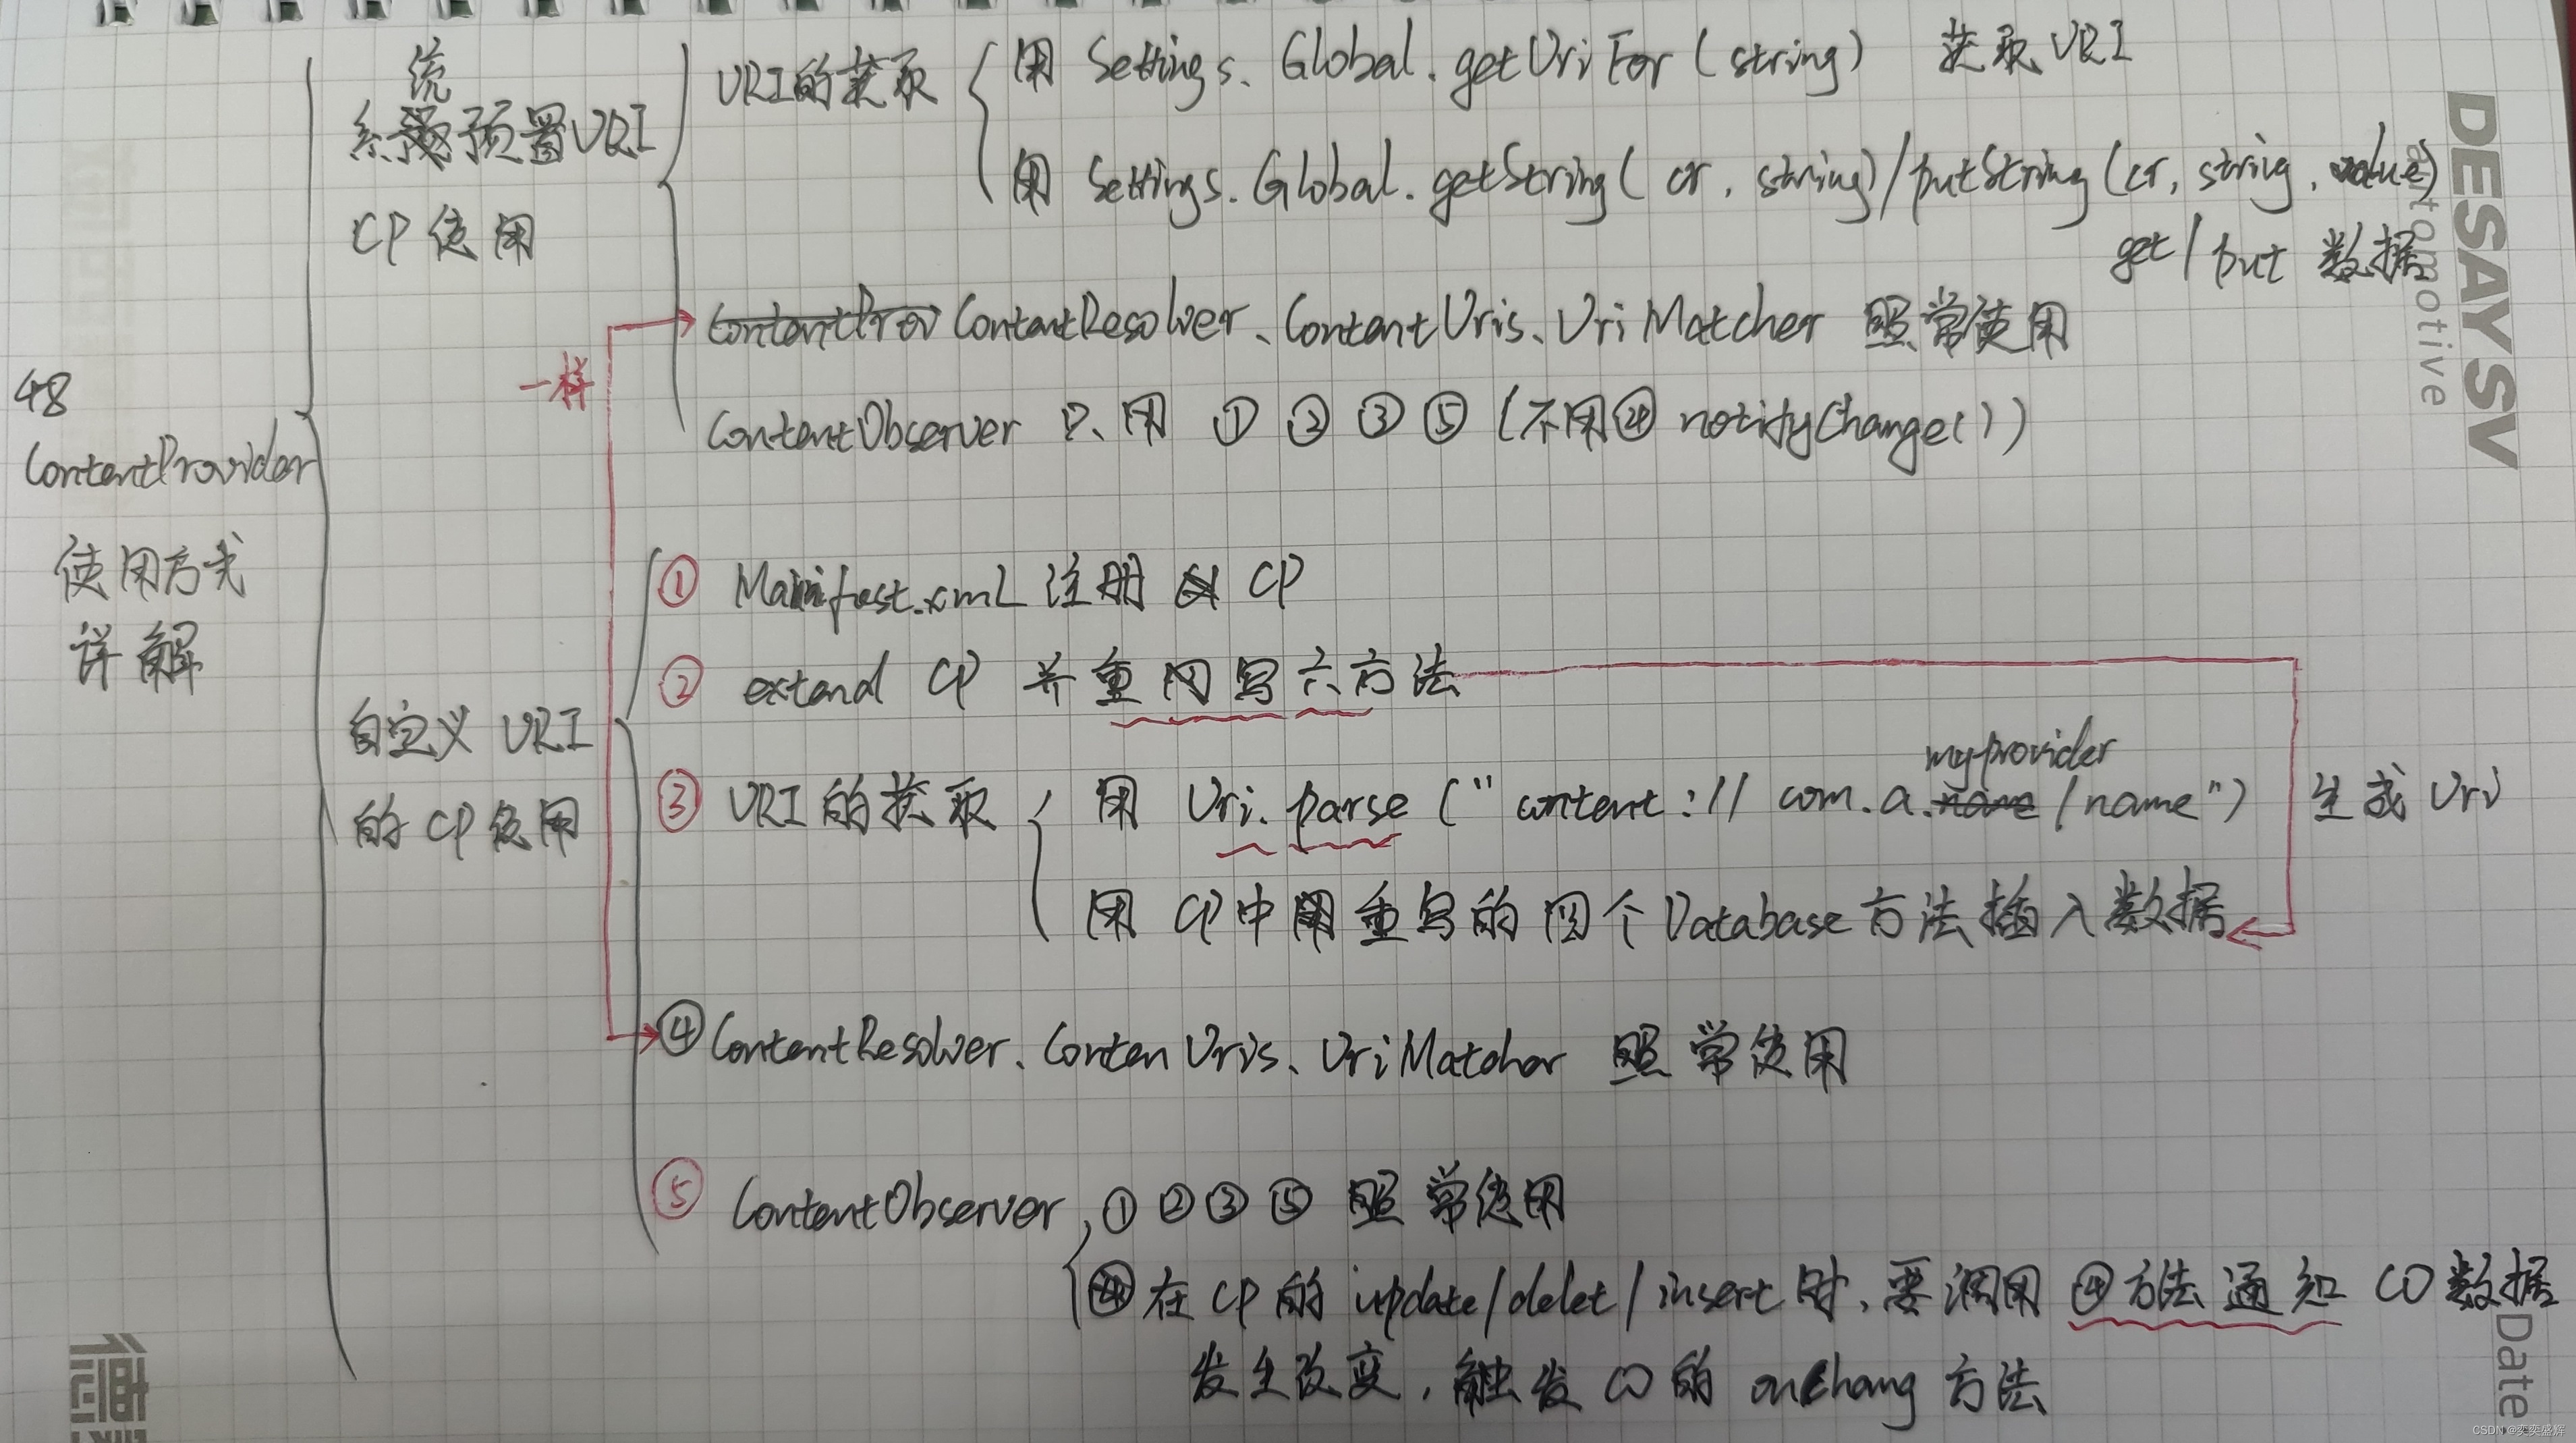 48
ContentProvider
使用方式
详解
系统预置URI
CP使用
URI的获取
用 Settings.Global.getUriFor(string) 获取URI
用 Settings.Global.getString(cr, string)/putString(cr, string, value)
get/put 数据
ContentProv ContentResolver、ContentUris、UriMatcher 照常使用
一样
ContentObserver 只用 ① ② ③ ⑤ (不用④ notifyChange())
自定义 URI
的 CP使用
① Manifest.xml 注册 CP
② extend CP 并重写六方法
③ URI的获取
用 Uri.parse("content://com.a.myprovider/name") 生成 Uri
用 CP中重写的四个Database方法插入数据
④ ContentResolver、ContenUris、UriMatcher 照常使用
⑤ ContentObserver, ① ② ③ ⑤ 照常使用
④ 在 CP 的 update/delet/insert 时,要调用 ④方法通知 CO 数据
发生改变,触发 CO 的 onChang 方法
DESAY SV
automotive
Date
CSDN @奕奕盛辉